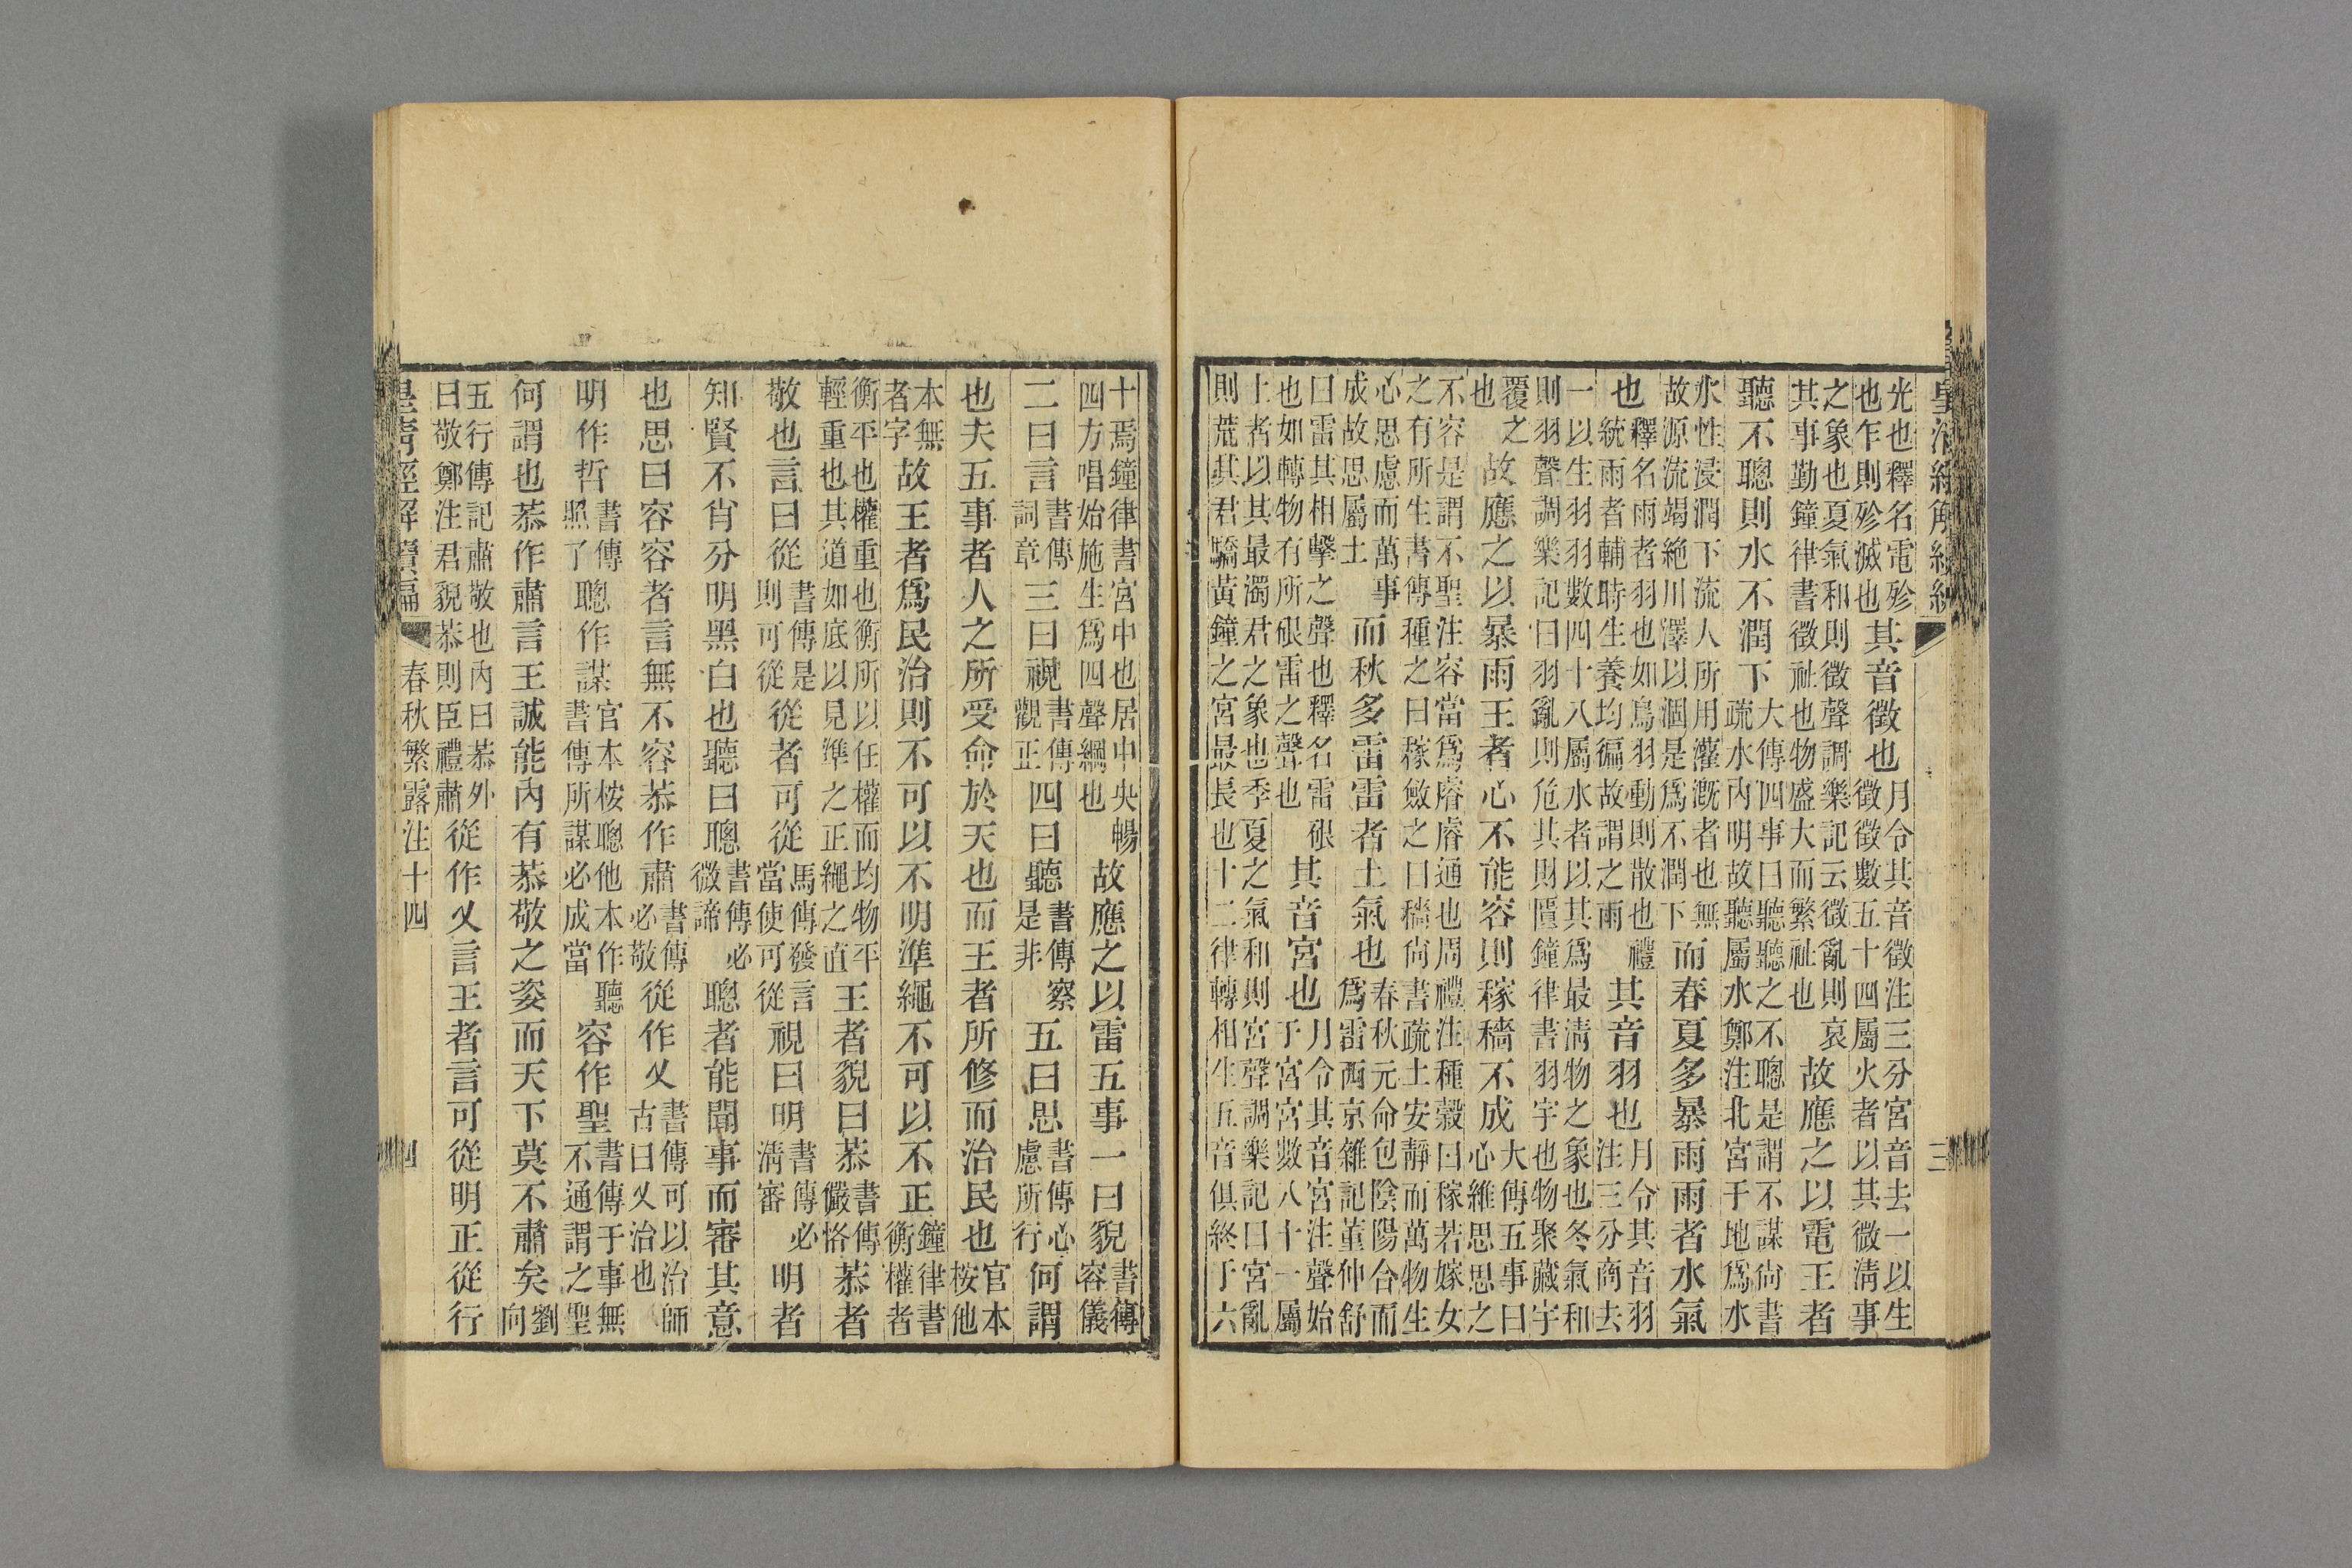 皇清經解續編 三
光也釋名電殄也乍則殄滅也其音徵也月令其音徵注三分宮音去一以生徵徵數五十四屬火者以其微淸事
之象也夏氣和則徵聲調樂記云徵亂則哀其事勤鐘律書徵祉也物盛大而繁祉也故應之以電王者
聽不聰則水不潤下大傳四事曰聽聽之不聰是謂不謀尙書疏水內明故聽屬水鄭注北宮于地爲水
水性浸潤下流人所用灌漑者也無故源流竭絶川澤以涸是爲不潤下而春夏多暴雨雨者水氣
也釋名雨者羽也如鳥羽動則散也禮統雨者輔時生養均徧故謂之雨其音羽也月令其音羽注三分商去
一以生羽羽數四十八屬水者以其爲最淸物之象也冬氣和則羽聲調樂記曰羽亂則危其財匱鐘律書羽宇也物聚藏宇
覆之也故應之以暴雨王者心不能容則稼穡不成大傳五事曰心維思思之
不容是謂不聖注容當爲睿睿通也周禮注種穀曰稼若嫁女之有所生書傳種之曰稼斂之曰穡尙書疏土安靜而萬物生
心思慮而萬事成故思屬土而秋多雷雷者土氣也春秋元命包陰陽合而爲雷西京雜記董仲舒
曰雷其相擊之聲也釋名雷硠也如轉物有所硠雷之聲也其音宮也月令其音宮注聲始于宮宮數八十一屬
土者以其最濁君之象也季夏之氣和則宮聲調樂記曰宮亂則荒其君驕黃鐘之宮最長也十二律轉相生五音俱終于六
十焉鐘律書宮中也居中央暢四方唱始施生爲四聲綱也故應之以雷五事一曰貌書傳容儀
二曰言書傳詞章三曰視書傳觀正四曰聽書傳察是非五曰思書傳心慮所行何謂
也夫五事者人之所受命於天也而王者所修而治民也官本桉他
本無者字故王者爲民治則不可以不明準繩不可以不正鐘律書衡權者
衡平也權重也衡所以任權而均物平輕重也其道如底以見準之正繩之直王者貌曰恭書傳儼恪恭者
敬也言曰從書傳是則可從從者可從馬傳發言當使可從視曰明書傳必淸審明者
知賢不肖分明黑白也聽曰聰書傳必微諦聰者能聞事而審其意
也思曰容容者言無不容恭作肅書傳必敬從作乂書傳可以治師古曰乂治也
明作哲書傳照了聰作謀官本桉聰他本作聽書傳所謀必成當容作聖書傳于事無不通謂之聖
何謂也恭作肅言王誠能內有恭敬之姿而天下莫不肅矣劉向
五行傳記肅敬也內曰恭外曰敬鄭注君貌恭則臣禮肅從作乂言王者言可從明正從行
皇清經解續編 春秋繁露注十四 四